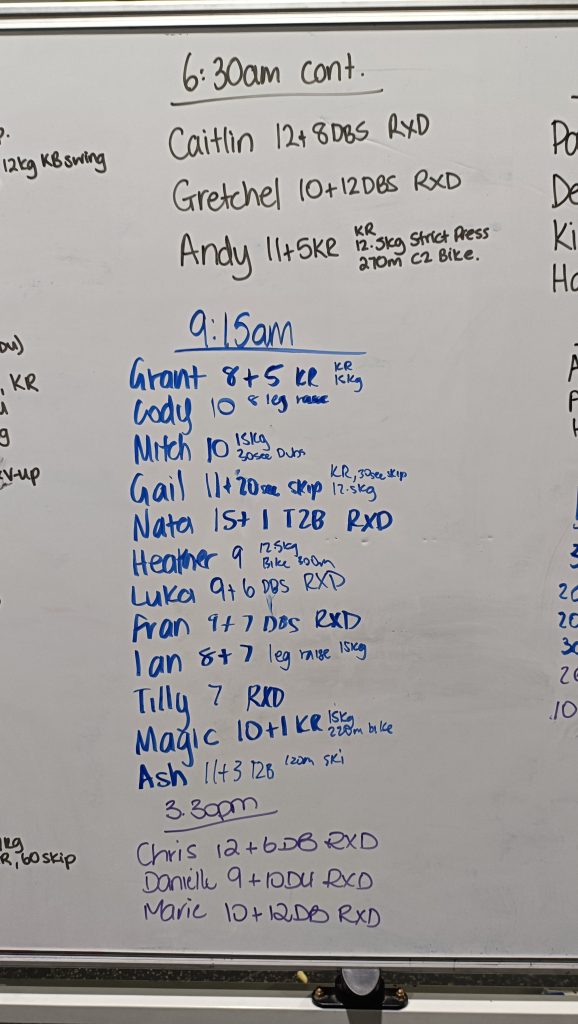 6:30am cont.
Caitlin 12+8DBS RXD
Gretchel 10+12DBS RXD
Andy 11+5KR KR
12.5kg Strict Press
270m C2 Bike.
9:15am
Grant 8+5 KR KR
15kg
Cody 10 8 leg raise
Mitch 10 15kg
30sec Dubs
Gail 11+20sec skip KR, 30sec skip
12.5kg
Nata 15+1 T2B RXD
Heather 9 12.5kg
Bike 300m
Luka 9+6 DBS RXD
Fran 9+7 DBS RXD
Ian 8+7 leg raise 15kg
Tilly 7 RXD
Magic 10+1 KR 15kg
220m bike
Ash 11+3 T2B 120m ski
3.30pm
Chris 12+6DB RXD
Danielle 9+10DU RXD
Marie 10+12DB RXD
12kg KB swing
, KR
60 skip